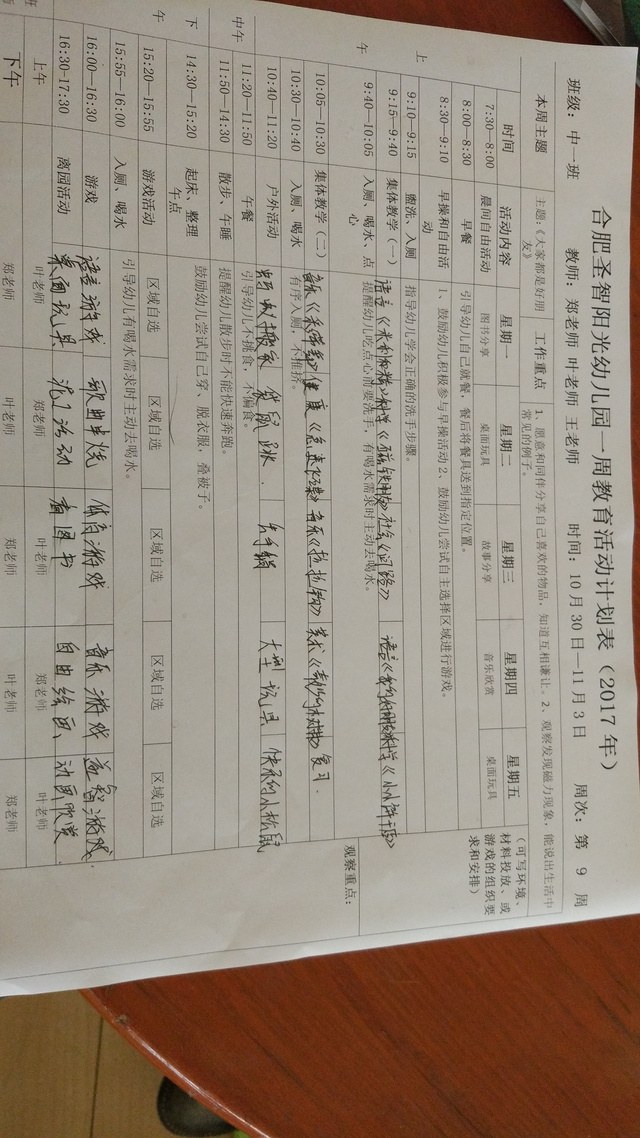 合肥圣智阳光幼儿园一周教育活动计划表（2017 年）
班级：中一班 教师：郑老师 叶老师 王老师 时间：10 月 30 日—11 月 3 日 周次：第 9 周
本周主题 主题：《大家都是好朋友》 工作重点 1、愿意和同伴分享自己喜欢的物品，知道互相谦让。2、观察发现磁力现象，能说出生活中常见的例子。
时间 活动内容 星期一 星期二 星期三 星期四 星期五 （可写环境、材料投放、或游戏的组织要求和安排）
上午
7:30—8:00 晨间自由活动 图书分享 桌面玩具 故事分享 音乐欣赏 桌面玩具
8:00—8:30 早餐 引导幼儿自己就餐，餐后将餐具送到指定位置。
8:30—9:10 早操和自由活动 1、鼓励幼儿积极参与早操活动 2、鼓励幼儿尝试自主选择区域进行游戏。
9:10—9:15 盥洗、入厕 指导幼儿学会正确的洗手步骤。
9:15—9:40 集体教学（一） 语言 科学 社会《问路》 语言 科学
9:40—10:05 入厕、喝水、点心 提醒幼儿吃点心前要洗手，有喝水需求时主动去喝水。
10:05—10:30 集体教学（二） 音乐 健康 音乐《拉拉钩》 美术 复习
10:30—10:40 入厕、喝水 有序入厕，不推挤。
10:40—11:20 户外活动 蚂蚁搬家 袋鼠跳 大型玩具 快乐的小松鼠
观察重点：
中午
11:20—11:50 午餐 引导幼儿不挑食，不偏食。
11:50—14:30 散步、午睡 提醒幼儿散步时不能快速奔跑。
下午
14:30—15:20 起床、整理午点 鼓励幼儿尝试自己穿、脱衣服，叠被子。
15:20—15:55 游戏活动 区域自选 区域自选 区域自选 区域自选 区域自选
15:55—16:00 入厕、喝水 引导幼儿有喝水需求时主动去喝水。
16:00—16:30 游戏 语言游戏 歌曲串烧 体育游戏 音乐游戏 益智游戏
16:30-17:30 离园活动 桌面玩具 泥工活动 看图书 自由绘画 动画欣赏
上午 叶老师 郑老师 叶老师 郑老师 叶老师
下午 郑老师 叶老师 郑老师 叶老师 郑老师